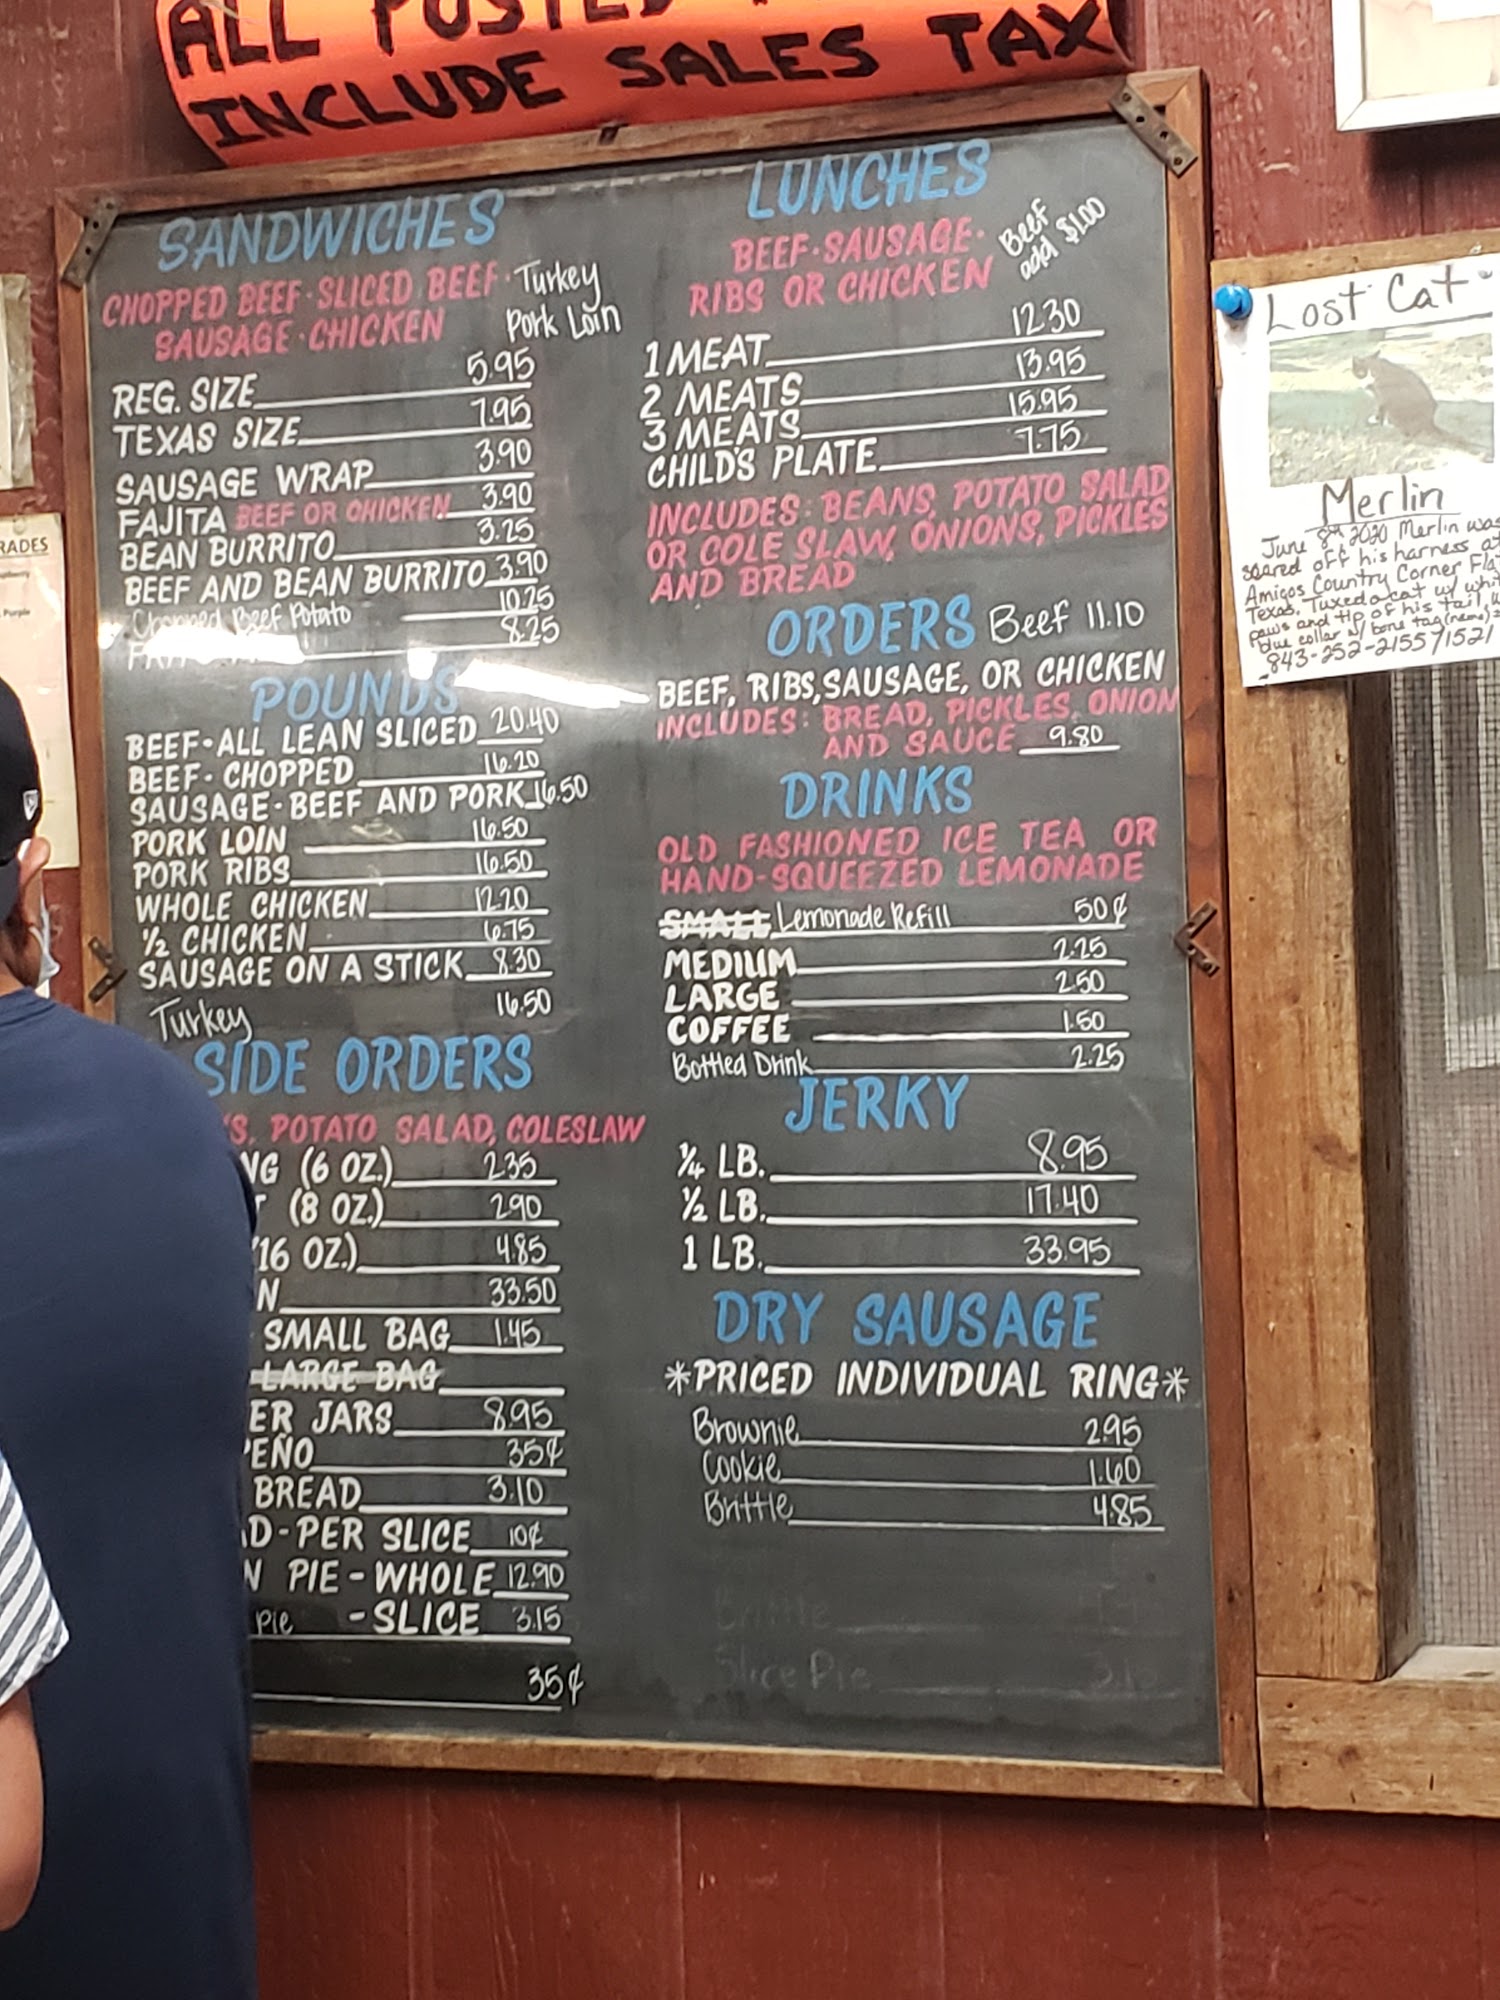 ALL POSTED
INCLUDE SALES TAX
SANDWICHES
CHOPPED BEEF·SLICED BEEF· Turkey
SAUSAGE·CHICKEN Pork Loin
REG. SIZE 5.95
TEXAS SIZE 7.95
SAUSAGE WRAP 3.90
FAJITA BEEF OR CHICKEN 3.90
BEAN BURRITO 3.25
BEEF AND BEAN BURRITO 3.90
Chopped Beef Potato 10.25
8.25
POUNDS
BEEF·ALL LEAN SLICED 20.40
BEEF·CHOPPED 16.20
SAUSAGE·BEEF AND PORK 16.50
PORK LOIN 16.50
PORK RIBS 16.50
WHOLE CHICKEN 12.20
½ CHICKEN 6.75
SAUSAGE ON A STICK 8.30
Turkey 16.50
SIDE ORDERS
S, POTATO SALAD, COLESLAW
NG (6 OZ.) 2.35
(8 OZ.) 2.90
(16 OZ.) 4.85
N 33.50
SMALL BAG 1.45
LARGE BAG
ER JARS 8.95
PEÑO 35¢
BREAD 3.10
D-PER SLICE 10¢
N PIE-WHOLE 12.90
Pie -SLICE 3.15
35¢
LUNCHES
BEEF·SAUSAGE·
RIBS OR CHICKEN
Beef
add $1.00
1 MEAT 12.30
2 MEATS 13.95
3 MEATS 15.95
CHILD'S PLATE 7.75
INCLUDES: BEANS, POTATO SALAD
OR COLE SLAW, ONIONS, PICKLES
AND BREAD
ORDERS Beef 11.10
BEEF, RIBS, SAUSAGE, OR CHICKEN
INCLUDES: BREAD, PICKLES, ONION
AND SAUCE 9.80
DRINKS
OLD FASHIONED ICE TEA OR
HAND-SQUEEZED LEMONADE
SMALL Lemonade Refill 50¢
MEDIUM 2.25
LARGE 2.50
COFFEE 1.50
Bottled Drink 2.25
JERKY
¼ LB. 8.95
½ LB. 17.40
1 LB. 33.95
DRY SAUSAGE
*PRICED INDIVIDUAL RING*
Brownie 2.95
Cookie 1.60
Brittle 4.85
Brittle
Slice Pie
Lost Cat
Merlin
June 8th 2020 Merlin was
scared off his harness at
Amigos Country Corner Fla
Texas. Tuxedo cat w/ whit
paws and tip of his tail w
blue collar w/ bone tag (name)
843-252-2155/1521
RADES
Purple